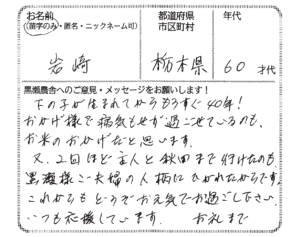 お名前
(苗字のみ・匿名・ニックネーム可)
都道府県
市区町村
年代
岩崎
栃木県
60才代
黒瀬農舎へのご意見・メッセージをお願いします！
下の子が生まれてからもうすぐ40年!
おかげ様で病気もせず過ごせているのも、
お米のおかげだと思います。
又、2回ほど主人と秋田まで行けたのも、
黒瀬様ご夫婦の人柄にひかれたからです。
これからもどうぞお元気でお過ごし下さい。
いつも応援しています。 お礼まで